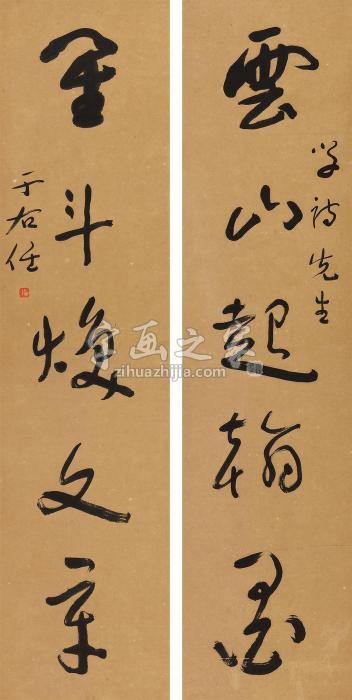 學詩先生
雲山起翰墨
星斗煥文章
于右任
字画之家
zihuazhijia.com